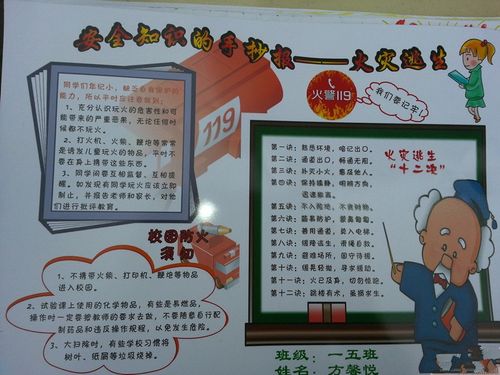 安全知识的手抄报——火灾逃生
同学们年纪小，缺乏自我保护的
能力，所以平时应注意做到：
1、充分认识玩火的危害性和可
能带来的严重恶果，无论任何时
候都不玩火。
2、打火机、火柴、鞭炮等常常
是诱发儿童玩火的物品，平时不
要在身上携带这些东西。
3、同学间要互相监督、互相提
醒。如发现有同学玩火应该立即
制止，并报告老师和家长，对他
们进行批评教育。
119
火警119
我们要记牢！
校园防火
须知
1、不携带火柴、打印机、鞭炮等物品
进入校园。
2、试验课上使用的化学物品，有些是易燃品，
操作时一定要按教师的要求去做，不要随意自行配
制药品和违反操作规程，以免发生危险。
3、大扫除时，有些学校习惯将
树叶、纸屑等垃圾烧掉。
火灾逃生
“十二决”
第一诀：熟悉环境，暗记出口。
第二诀：通道出口，畅通无阻。
第三诀：扑灭小火，惠及他人。
第四诀：保持镇静，明辨方向，
迅速撤离。
第五诀：不入险地，不贪财物。
第六诀：简易防护，蒙鼻匍匐。
第七诀：善用通道，莫入电梯。
第八诀：缓降逃生，滑绳自救。
第九诀：避难场所，固守待援。
第十诀：缓晃轻抛，寻求援助。
第十一诀：火已及身，切勿惊跑。
第十二诀：跳楼有术，虽损求生。
班级：一五班
姓名：方馨悦